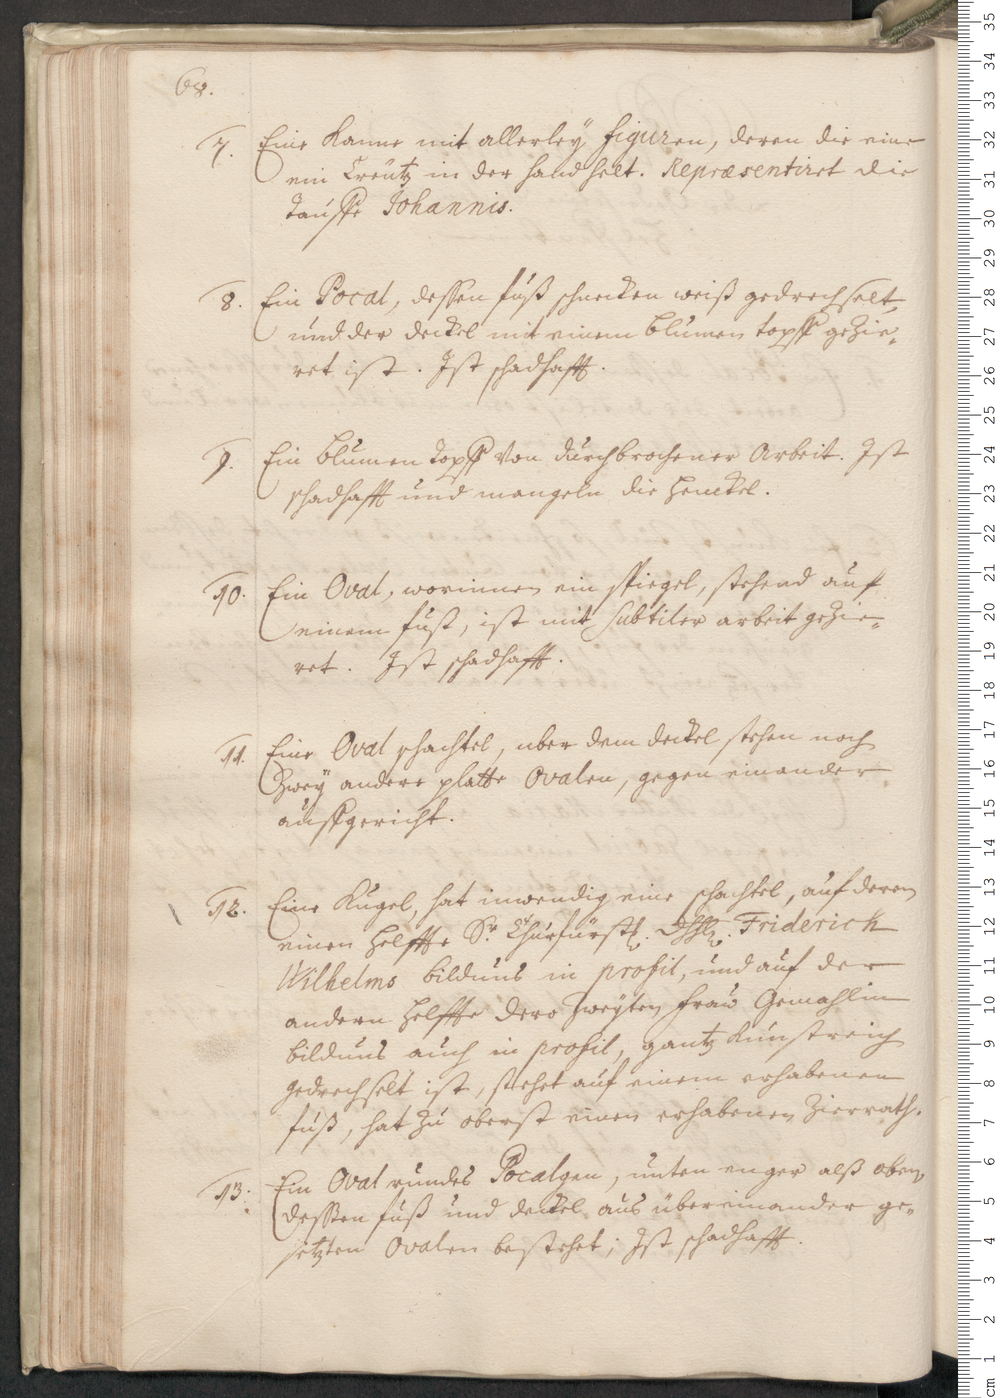 68.
7. Eine Kanne mit allerleÿ figuren, deren die eine
ein Creütz in der hand helt. Repræsentiret die
Tauffe Johannis.
8. Ein Pocal, dessen fuß schnecken weiß gedrechselt,
und der deckel mit einem blumen topff gezie-
ret ist. Ist schadhafft.
9. Ein blumen topff von durchbrochener Arbeit. Ist
schadhafft und mangeln die henckel.
10. Ein Oval, worinnen ein spiegel, stehend auf
einem fuß, ist mit subtiler arbeit gezie-
ret. Ist schadhafft.
11. Eine Oval schachtel, uber dem deckel stehen noch
zweÿ andere platte Ovalen, gegen einander
auffgericht.
12. Eine Kugel, hat inwendig eine schachtel, auf deren
einen helffte Sr. Churfürstl. Dhl. Friderich
Wilhelms bildnus in profil, und auf der
andern helffte dero zweÿten frau Gemahlin
bildnus auch in profil, gantz künstreich
gedrechselt ist, stehet auf einem erhabenen
fuß, hat zu oberst einen erhabenen Zierrath.
13. Ein Oval rundes Pocalgen, unten enger alß oben,
dessen fuß und deckel aus übereinander ge-
setzten Ovalen bestehet; Ist schadhafft.
35
34
33
32
31
30
29
28
27
26
25
24
23
22
21
20
19
18
17
16
15
14
13
12
11
10
9
8
7
6
5
4
3
2
1
cm